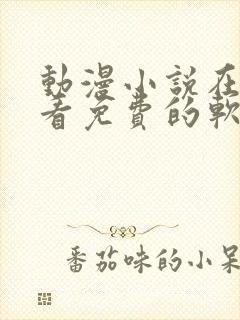 動漫小說在
看免費的軟
番茄味的小呆